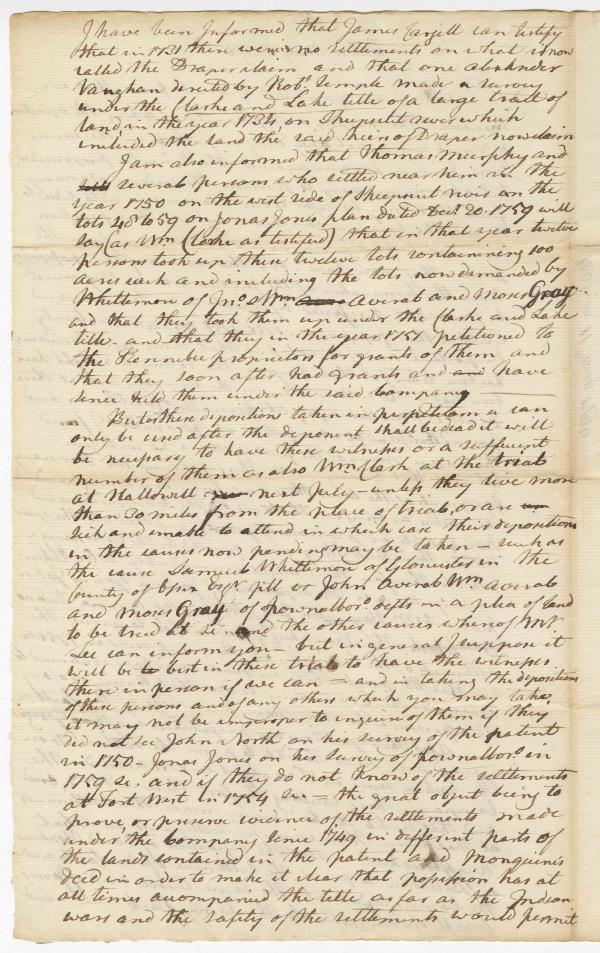 I have been Informed that James Cargill can testify
that in 1731 there were no settlements on what is now
called the Draper claim and that one Alexander
Vaughan directed by Robt. Temple made a survey
under the Clarke and Lake title of a large tract of
land, in the year 1734, on Sheepscut river which
included the land the said heirs of Draper now claim
I am also informed that Thomas Murphy and
several persons who settled near him in the
year 1750 on the west side of Sheepscut river on the
lots 48 to 59 on Jonas Jones plan dated Decr. 20. 1759 will
say (as Wm Clarke as testified) that in that year twelve
persons took up these twelve lots containing 100
acres each and including the lots now demanded by
Whittemore of Jno. & Wm Averab and Moses Gray
and that they took them up under the Clarke and Lake
title - and that they in the year 1751 petitioned to
the Kennebec proprietors for grants of them and
that they soon after had grants and have
since held them under the said company
But as these depositions taken in perpetuam can
only be used after the deponent shall be dead it will
be necessary to have these witnesses or a sufficient
number of them as also Wm Clark at the trial
at Hallowell next July - unless they live more
than 30 miles from the place of trial, or are
sick and unable to attend in which case their depositions
in the causes now pending may be taken - such as
the cause Samuel Whittemore of Gloucester in the
County of Essex Esqr. plf vs John Averab Wm Averab
and Moses Gray of Pownalboro. defts in a plea of land
to be tried at &c. and the other causes whereof Mr
Lee can inform you - but in general I suppose it
will be best in these trials to have the witnesses
there in person if we can - and in taking the depositions
of these persons and of any others which you may take,
it may not be improper to inquire of them if they
did not see John North on his survey of the patent
in 1750 - Jonas Jones on his survey of Pownalboro. in
1759 &c. and if they do not know of the settlements
at Fort West in 1754 &c - the great object being to
prove, or preserve evidence of the settlements made
under the company since 1749 in different parts of
the lands contained in the patent and Monquines
deed in order to make it clear that possession has at
all times accompanied the title as far as the Indian
wars and the safety of the settlements would permit